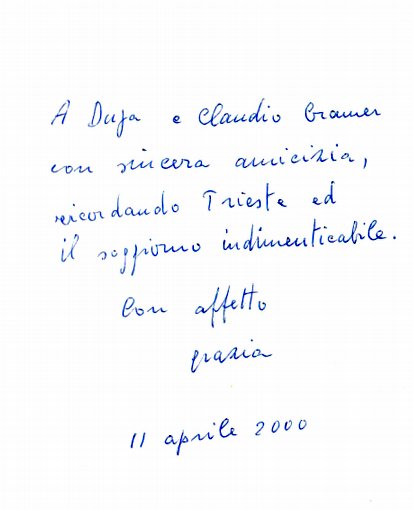 A Duja e Claudio Cramer
con sincera amicizia,
ricordando Trieste ed
il soggiorno indimenticabile.
Con affetto
grazia
11 aprile 2000